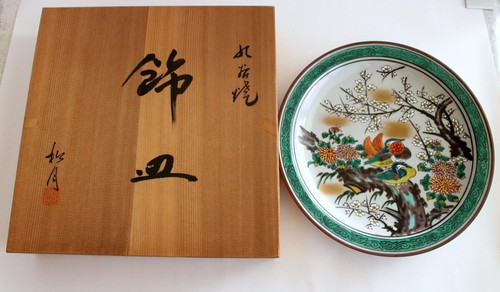 九谷焼
飾皿
松月